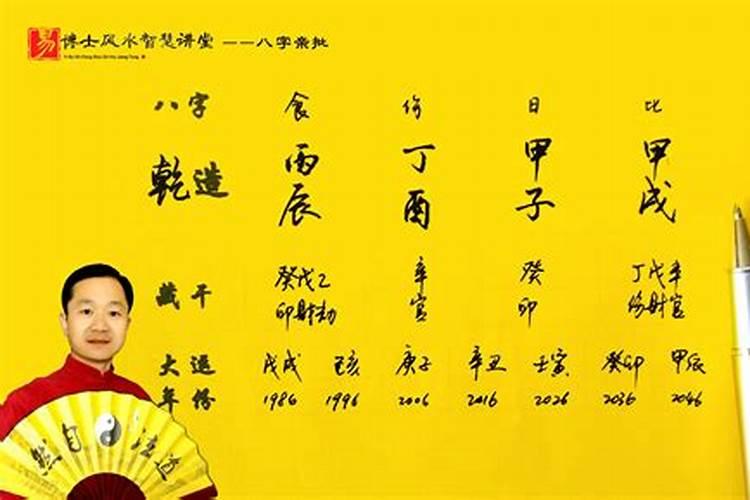 易 博士风水智慧讲堂 ——八字亲批
八字 食 伤 日 比
乾造 丙 丁 甲 甲
辰 酉 子 戌
藏干 癸戊乙 辛 癸 丁戊辛
印财劫 官 印 伤财官
大运 戊戌 己亥 庚子 辛丑 壬寅 癸卯 甲辰
年份 1986 1996 2006 2016 2026 2036 2046
然自法道